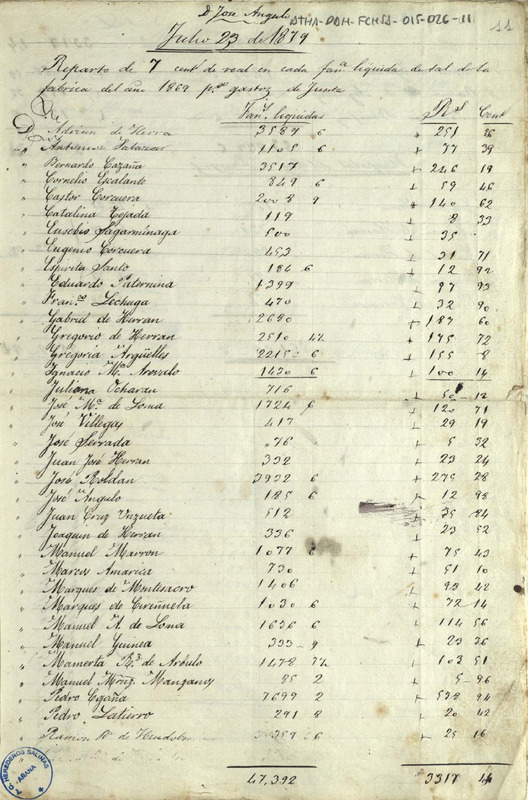 D. Jose Angulo
ATHA-DAH-FCHSA-015-026-11
11
Julio 23 de 1879
Reparto de 7 cent. de real en cada fanª liquida de sal de la
fabrica del año 1869 pª gastos de Junta
Fanª liquidas Rs Cent
D. Adrian de Herra 3589 6 + 251 26
" Antonio Salazar 1105 6 + 77 39
" Bernardo Cazaña 3517 + 246 19
" Cornelio Escalante 849 6 + 59 46
" Castor Corcuera 2008 9 + 140 62
" Catalina Tejada 119 + 8 33
" Eusebio Sagarminaga 500 + 35
" Eugenio Corcuera 453 + 31 71
" Espiritu Santo 184 6 + 12 92
" Eduardo Paternina 1399 + 97 93
" Franco Lechuga 470 + 32 90
" Gabriel de Herran 2680 + 187 60
" Gregorio de Herran 2510 + 175 72
" Gregoria Argüelles 2215 6 + 155 8
" Ignacio Mª Arevalo 1430 6 + 100 14
" Juliana Ocharan 716 + 50 12
" José Mª de Loma 1724 6 + 120 71
" José Villegas 417 + 29 19
" José Serrada "76 + 5 32
" Juan José Herran 332 + 23 24
" José Roldan 3932 6 + 275 28
" José Angulo 185 6 + 12 98
" Juan Cruz Unzueta 512 + 35 84
" Joaquin de Herran 336 + 23 52
" Manuel Marron 1077 6 + 75 43
" Marcos Amarica 730 + 51 10
" Marques de Montesacro 1406 + 98 42
" Marques de Ciriñuela 1030 6 + 72 14
" Manuel A. de Loma 1636 6 + 114 56
" Manuel Guinea 333 9 + 23 36
" Mamerta Rz de Arbulo 1478 + 103 51
" Manuel Mrnz. Manganos 85 2 + 5 96
" Pedro Egaña 7699 2 + 538 94
" Pedro Latierro 291 8 + 20 42
" Ramon 359 6 + 25 16
47,392 3317 44
T.Q. HEREDEROS SALINAS
AÑANA